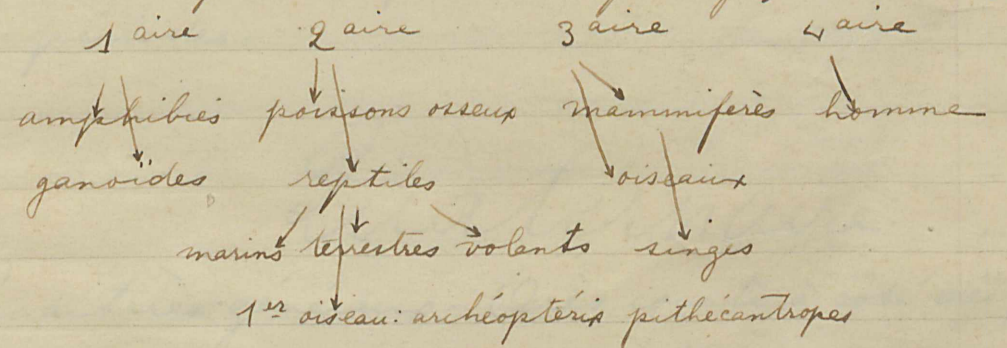 1 aire 2 aire 3 aire 4 aire
amphibies poissons osseux mammiferès homme
ganoïdes reptiles oiseaux
marins terrestres volants singes
1er oiseau: archéoptérix pithécantropes